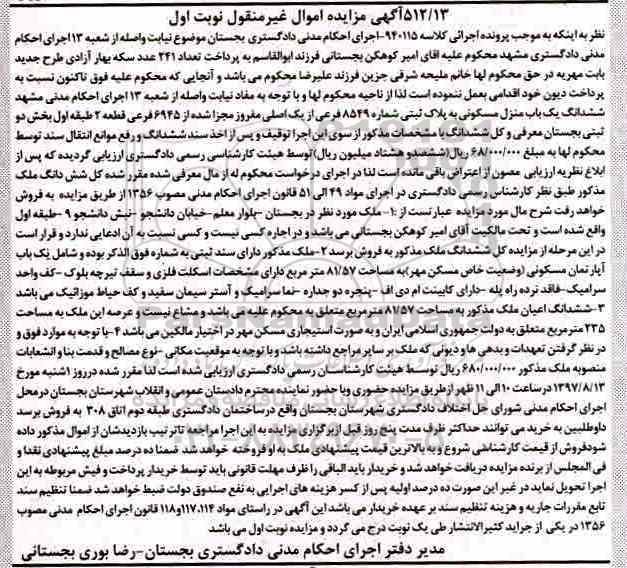 ۵۱۲/۱۳آگهی مزایده اموال غیرمنقول نوبت اول
نظر به اینکه به موجب پرونده اجرائی کلاسه ۹۴۰۱۱۵-اجرای احکام مدنی دادگستری بجستان موضوع نیابت واصله از شعبه ۱۳ اجرای احکام
مدنی دادگستری مشهد محکوم علیه اقای امیر کوهکن بجستانی فرزند ابوالقاسم به پرداخت تعداد ۲۴۱ عدد سکه بهار آزادی طرح جدید
بابت مهریه در حق محکوم لها خانم ملیحه شرقی جزین فرزند علیرضا محکوم می باشد و آنجایی که محکوم علیه فوق تاکنون نسبت به
پرداخت دیون خود اقدامی بعمل ننموده است لذا از ناحیه محکوم لها و با توجه به مفاد نیابت واصله از شعبه ۱۳ اجرای احکام مدنی مشهد
ششدانگ یک باب منزل مسکونی به پلاک ثبتی شماره ۸۵۴۹ فرعی از یک اصلی مفروز مجزا شده از ۶۹۴۵ فرعی قطعه ۲ طبقه اول بخش دو
ثبتی بجستان معرفی و کل ششدانگ با مشخصات مذکور از سوی این اجرا توقیف و پس از اخذ سند ششدانگ و رفع موانع انتقال سند توسط
محکوم لها به مبلغ ۶۸/۰۰۰/۰۰۰ ریال(ششصدو هشتاد میلیون ریال) توسط هیئت کارشناسی رسمی دادگستری ارزیابی گردیده که پس از
ابلاغ نظریه ارزیابی مصون از اعتراض باقی مانده است لذا در اجرای درخواست محکوم له از مال معرفی شده مقرر شده کل شش دانگ ملک
مذکور طبق نظر کارشناس رسمی دادگستری در اجرای مواد ۴۹ الی ۵۱ قانون اجرای احکام مدنی مصوب ۱۳۵۶ از طریق مزایده به فروش
خواهد رفت شرح مال مورد مزایده عبارتست از :۱- ملک مورد نظر در بجستان -بلوار معلم-خیابان دانشجو -نبش دانشجو ۹ -طبقه اول
واقع شده است و تحت مالکیت آقای امیر کوهکن بجستانی می باشد و در اجاره کسی نیست و کسی نسبت به آن ادعایی ندارد و قرار است
در این مرحله از مزایده کل ششدانگ ملک مذکور به فروش برسد ۲-ملک مذکور دارای سند ثبتی به شماره فوق الذکر بوده و شامل یک باب
آپارتمان مسکونی (وضعیت خاص مسکن مهر)به مساحت ۸۱/۵۷ متر مربع دارای مشخصات اسکلت فلزی و سقف تیرچه بلوک -کف واحد
سرامیک-فاقد نرده راه پله -دارای کابینت ام دی اف -پنجره دو جداره -نما سرامیک و آستر سیمان سفید و کف حیاط موزائیک می باشد
۳-ششدانگ اعیان ملک مذکور به مساحت ۸۱/۵۷ مترمربع متعلق به محکوم علیه می باشد و مشاع نیست و عرصه این ملک به مساحت
۲۳۵ مترمربع متعلق به دولت جمهوری اسلامی ایران و به صورت استیجاری مسکن مهر در اختیار مالکین می باشد ۴-با توجه به موارد فوق و
در نظر گرفتن تعهدات و بدهی ها و دیونی که ملک بر سایر مراجع داشته باشد و با توجه به موقعیت مکانی -نوع مصالح و قدمت بنا و انشعابات
منصوبه ملک مذکور ۶۸۰/۰۰۰/۰۰۰ ریال توسط هیئت کارشناسان رسمی دادگستری ارزیابی شده است لذا مقرر شده درروز ۱شنبه مورخ
۱۳۹۷/۸/۱۳ درساعت ۱۰ الی ۱۱ ظهر ازطریق مزایده حضوری وبا حضور نماینده محترم دادستان عمومی و انقلاب شهرستان بجستان درمحل
اجرای احکام مدنی شورای حل اختلاف دادگستری شهرستان بجستان واقع درساختمان دادگستری طبقه دوم اتاق ۳۰۸ به فروش برسد
داوطلبین به خرید می توانند حداکثر ظرف مدت پنج روز قبل ازبرگزاری مزایده به این اجرا مراجعه تاترتیب بازدیدشان از اموال مذکور داده
شودفروش از قیمت کارشناشی شروع و به بالاترین قیمت پیشنهادی ملک به او فروخته خواهد شد ضمنا ده درصد مبلغ پیشنهادی نقدا و
فی المجلس از برنده مزایده دریافت خواهد شد و خریدار باید الباقی را ظرف مهلت قانونی باید توسط خریدار پرداخت و فیش مربوطه به این
اجرا تحویل نماید در غیر این صورت ده درصد اولیه پس از کسر هزینه های اجرایی به نفع صندوق دولت ضبط خواهد شد ضمنا تنظیم سند
تابع مقررات جاریه و هزینه تنظیم سند بر عهده خریدار می باشد این آگهی در راستای مواد ۱۱۷،۱۱۴و۱۱۸ قانون اجرای احکام مدنی مصوب
۱۳۵۶ در یکی از جراید کثیرالانتشار طی یک نوبت درج می گردد و مزایده نوبت اول می باشد
مدیر دفتر اجرای احکام مدنی دادگستری بجستان-رضا بوری بجستانی